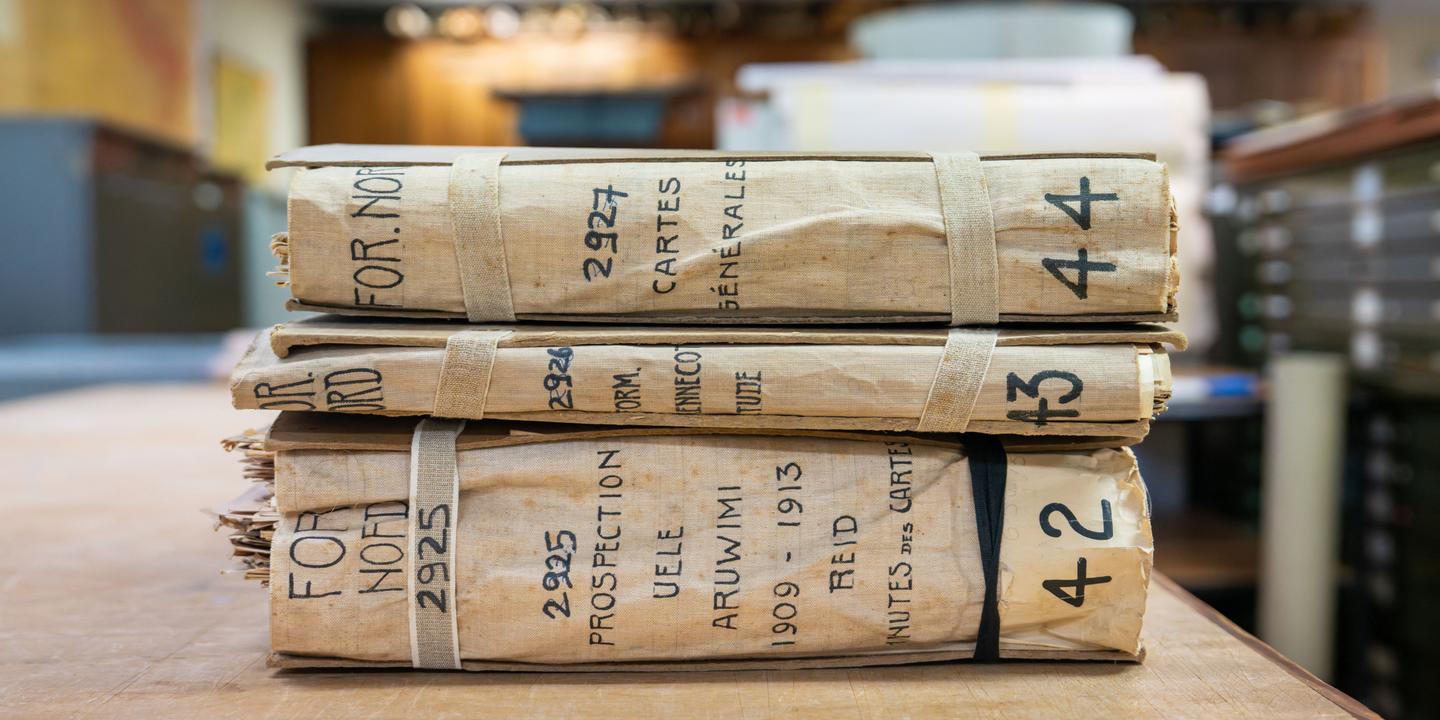 FOR. NOR
2927
CARTES
GÉNÉRALES
44
OR.
ORD
2926
FORM.
ENNECO
TUDE
43
FOR
NORD
2925
2925
PROSPECTION
UELE
ARUWIMI
1909 - 1913
REID
INUTES DES CARTES
42